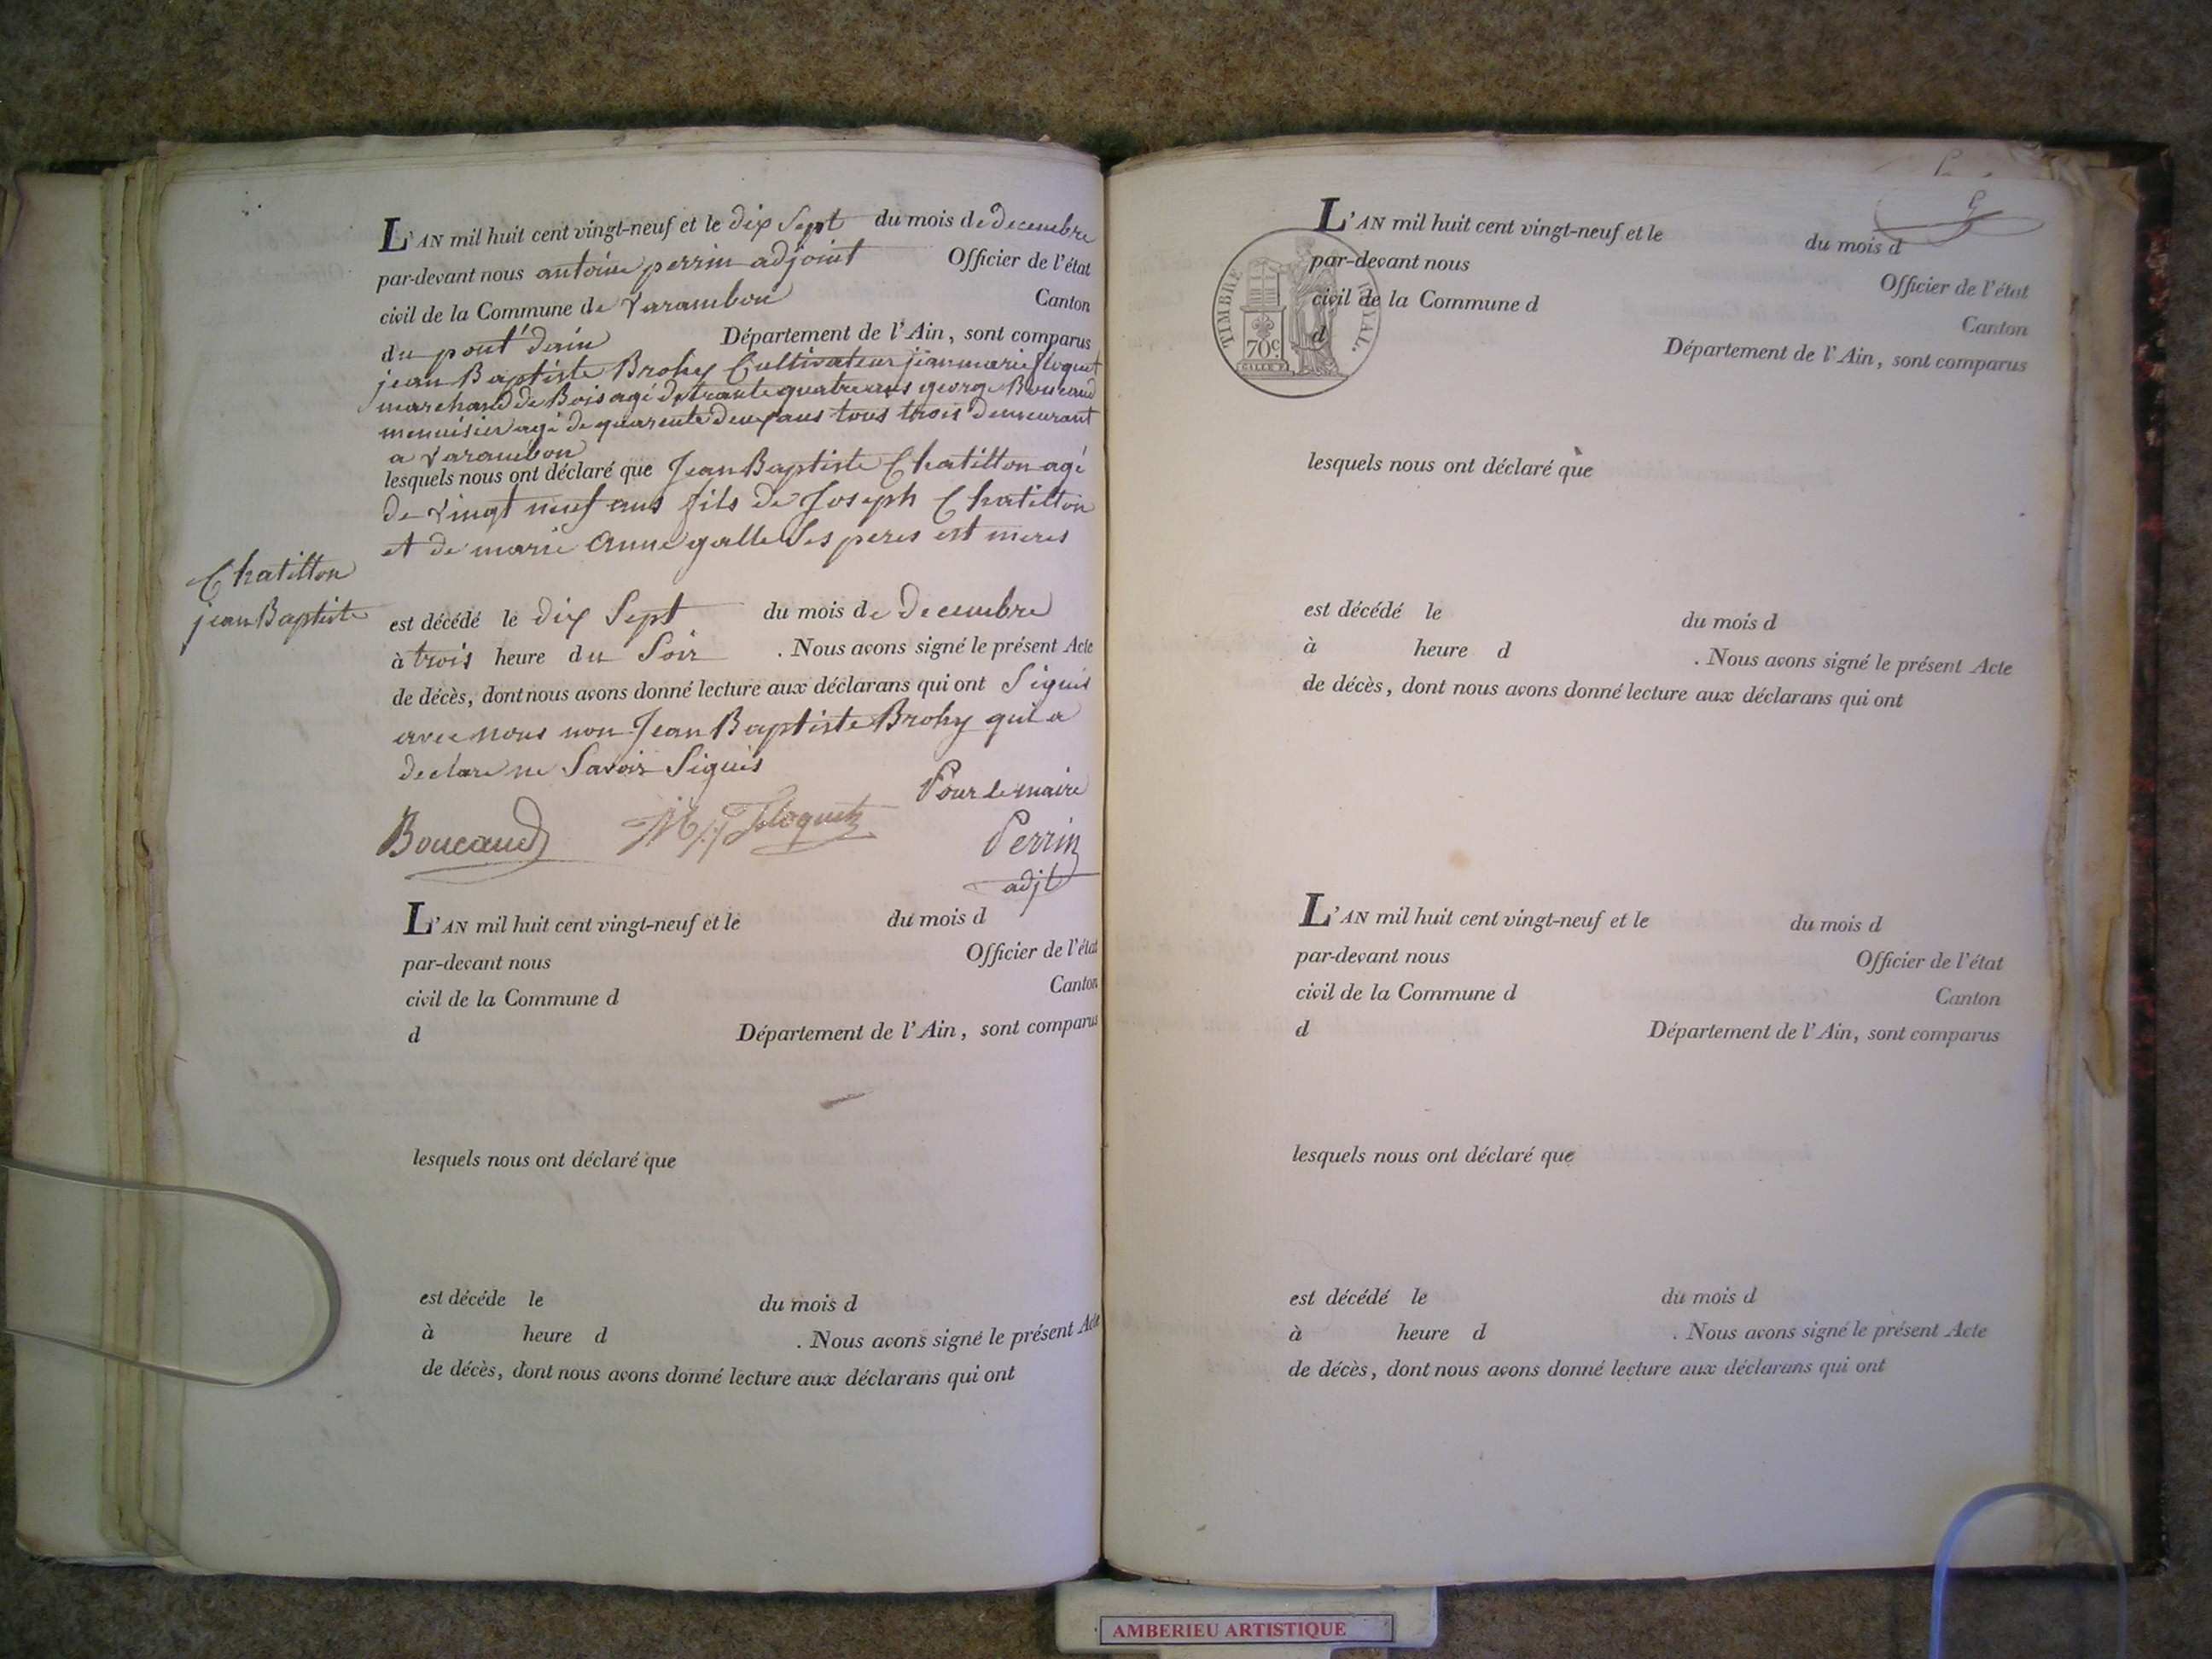 L'AN mil huit cent vingt-neuf et le dix Sept du mois de decembre
par-devant nous antoine perrin adjoint Officier de l'état
civil de la Commune de Varambon Canton
du pont d'ain Département de l'Ain, sont comparus
jean Baptiste Brohy Cultivateur jean marie floquet
marchand de Bois agé de trante quatre ans george Boucaud
menuisier agé de quarente deux ans tous trois demeurant
a Varambon
lesquels nous ont déclaré que Jean Baptiste Chatillon agé
de vingt neuf ans fils de Joseph Chatillon
et de marie Anne galle Ses peres est meres
Chatillon
jean Baptiste
est décédé le dix Sept du mois de decembre
à trois heure du Soir . Nous avons signé le présent Acte
de décès, dont nous avons donné lecture aux déclarans qui ont Signés
avec nous non Jean Baptiste Brohy qui a
declare ne Savoir Signés
Pour le maire
Boucaud floquet Perrin
adjt
L'AN mil huit cent vingt-neuf et le du mois d
par-devant nous Officier de l'état
civil de la Commune d Canton
d Département de l'Ain, sont comparus
lesquels nous ont déclaré que
est décéde le du mois d
à heure d . Nous avons signé le présent Acte
de décès, dont nous avons donné lecture aux déclarans qui ont
L'AN mil huit cent vingt-neuf et le du mois d
par-devant nous Officier de l'état
civil de la Commune d Canton
d Département de l'Ain, sont comparus
TIMBRE ROYAL.
70c
lesquels nous ont déclaré que
est décédé le du mois d
à heure d . Nous avons signé le présent Acte
de décès, dont nous avons donné lecture aux déclarans qui ont
L'AN mil huit cent vingt-neuf et le du mois d
par-devant nous Officier de l'état
civil de la Commune d Canton
d Département de l'Ain, sont comparus
lesquels nous ont déclaré que
est décédé le du mois d
à heure d . Nous avons signé le présent Acte
de décès, dont nous avons donné lecture aux déclarans qui ont
AMBERIEU ARTISTIQUE